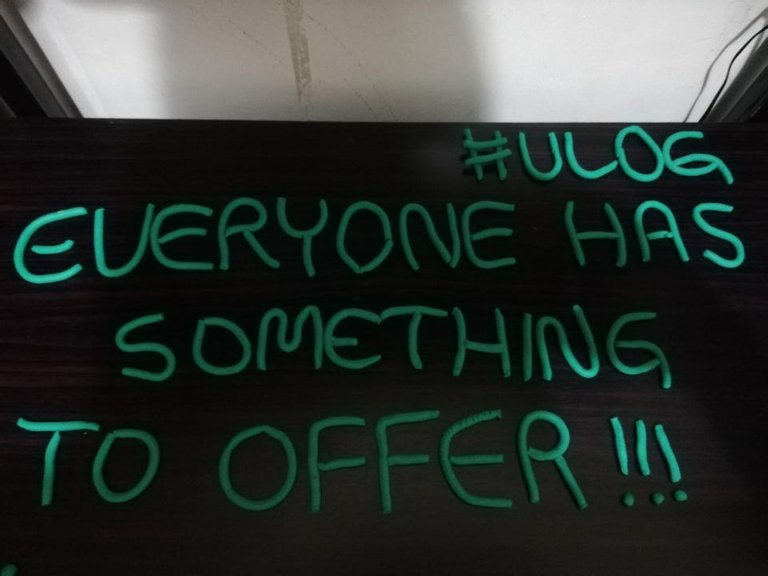 #ULOG
EVERYONE HAS
SOMETHING
TO OFFER!!!